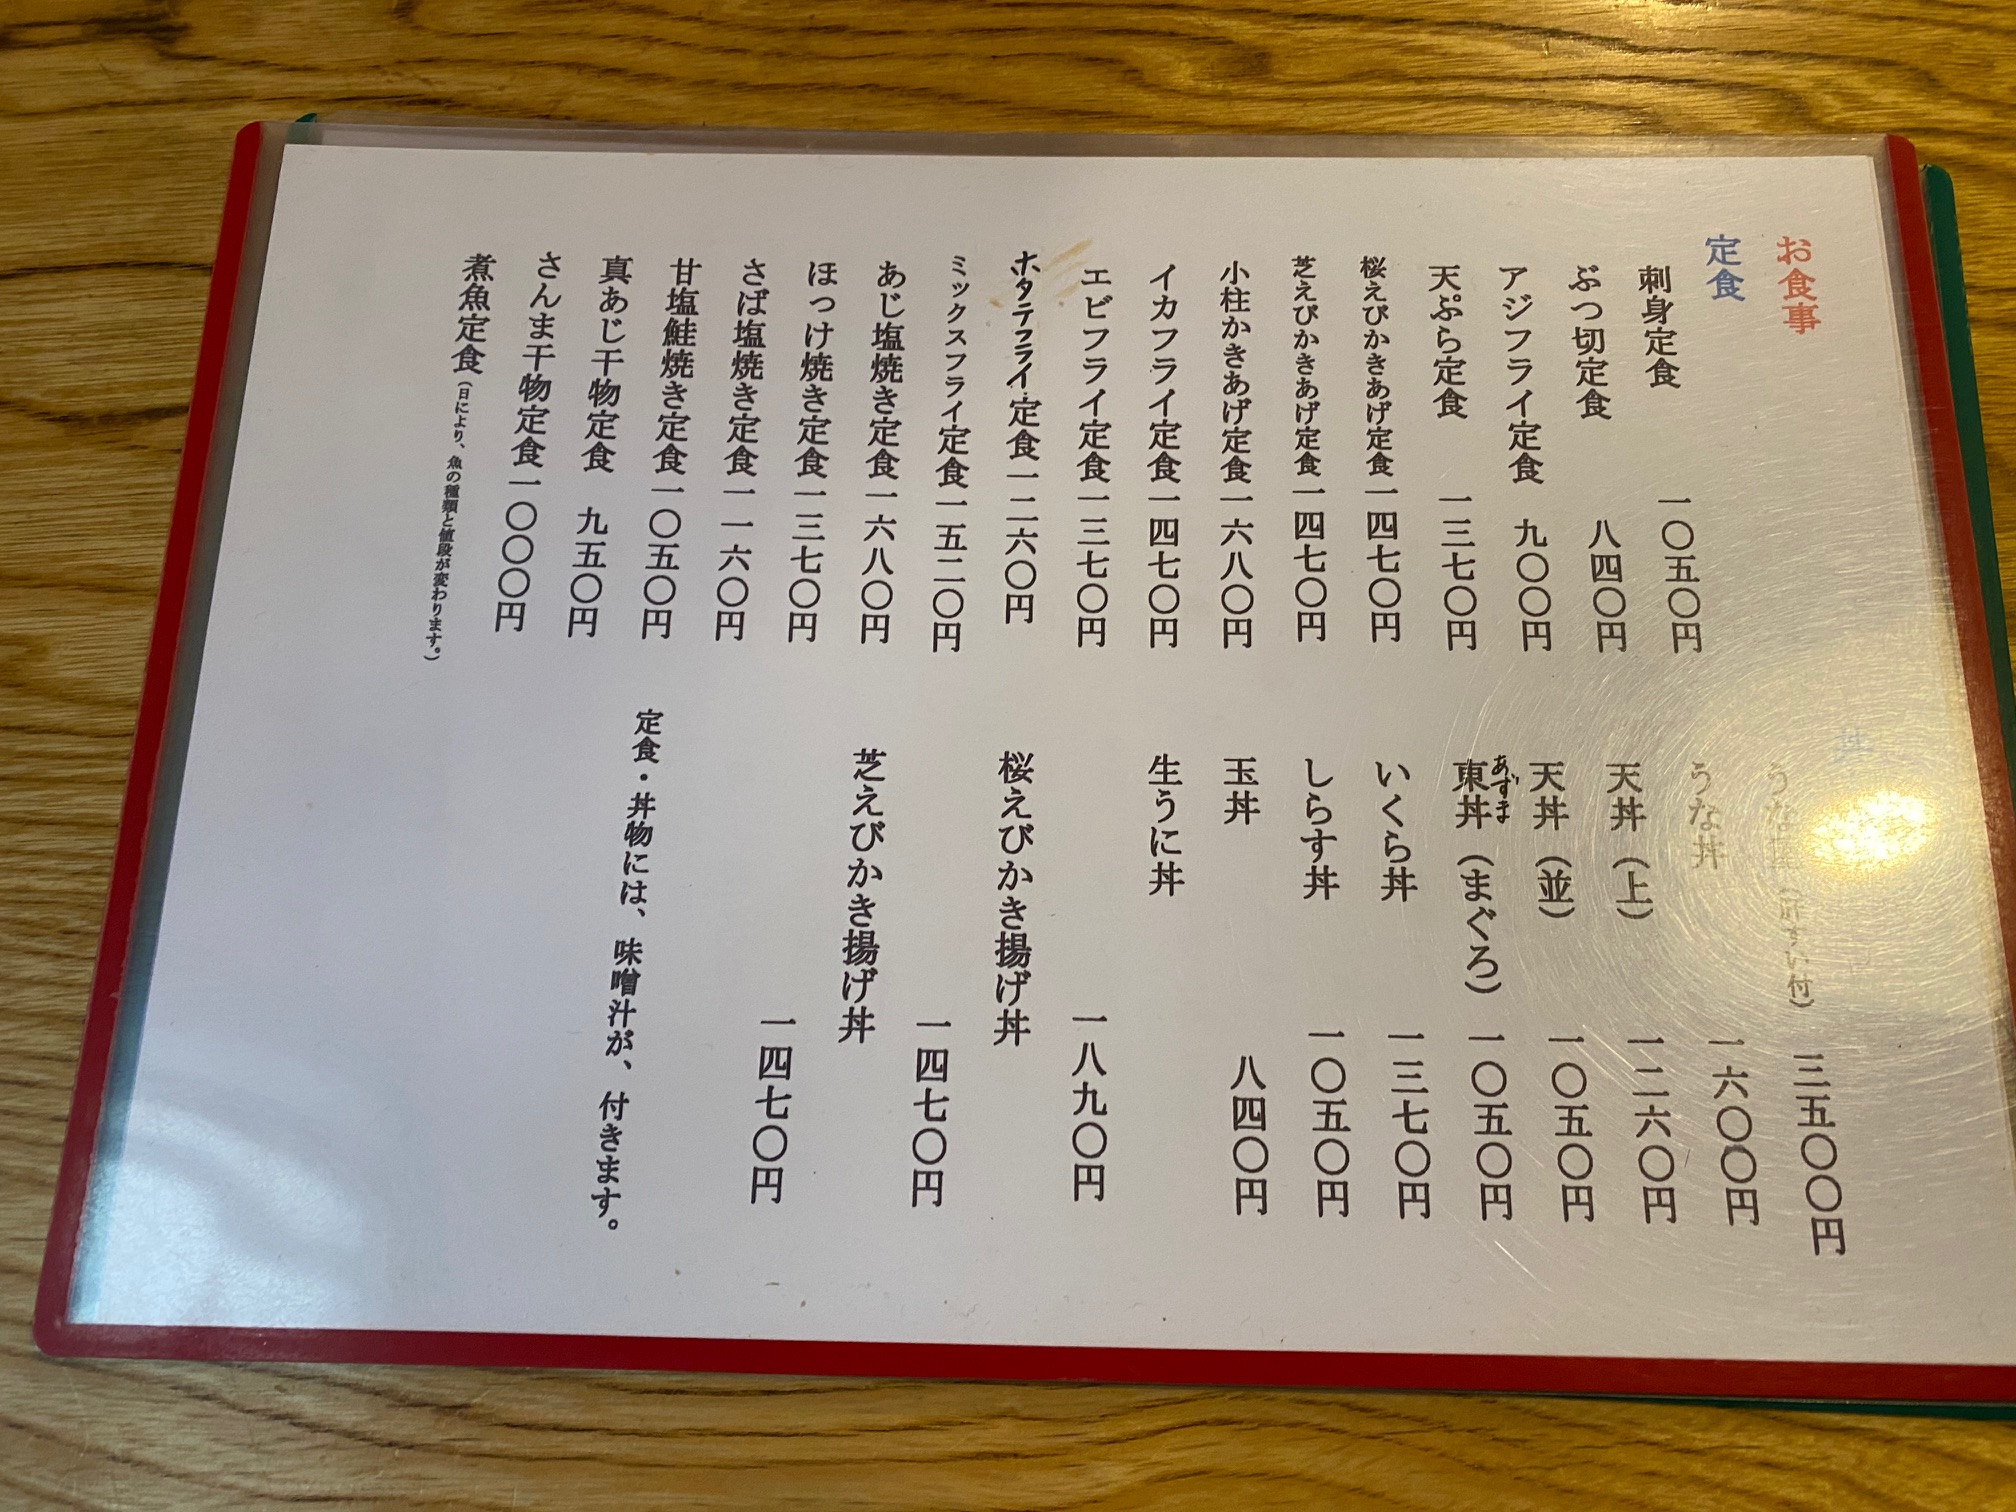 お食事
定食
刺身定食 一〇五〇円
ぶつ切定食 八四〇円
アジフライ定食 九〇〇円
天ぷら定食 一三七〇円
桜えびかきあげ定食 一四七〇円
芝えびかきあげ定食 一四七〇円
小柱かきあげ定食 一六八〇円
イカフライ定食 一四七〇円
エビフライ定食 一三七〇円
ホタテフライ定食 一二六〇円
ミックスフライ定食 一五二〇円
あじ塩焼き定食 一六八〇円
ほっけ焼き定食 一三七〇円
さば塩焼き定食 一一六〇円
甘塩鮭焼き定食 一〇五〇円
真あじ干物定食 九五〇円
さんま干物定食 一〇〇〇円
煮魚定食(日により、魚の種類と値段が変わります。)
丼
うな重(肝すい付) 三五〇〇円
うな丼 一六〇〇円
天丼(上) 一二六〇円
天丼(並) 一〇五〇円
あずま
東丼(まぐろ) 一〇五〇円
いくら丼 一三七〇円
しらす丼 一〇五〇円
玉丼 八四〇円
生うに丼
一八九〇円
桜えびかき揚げ丼
一四七〇円
芝えびかき揚げ丼
一四七〇円
定食・丼物には、味噌汁が、付きます。